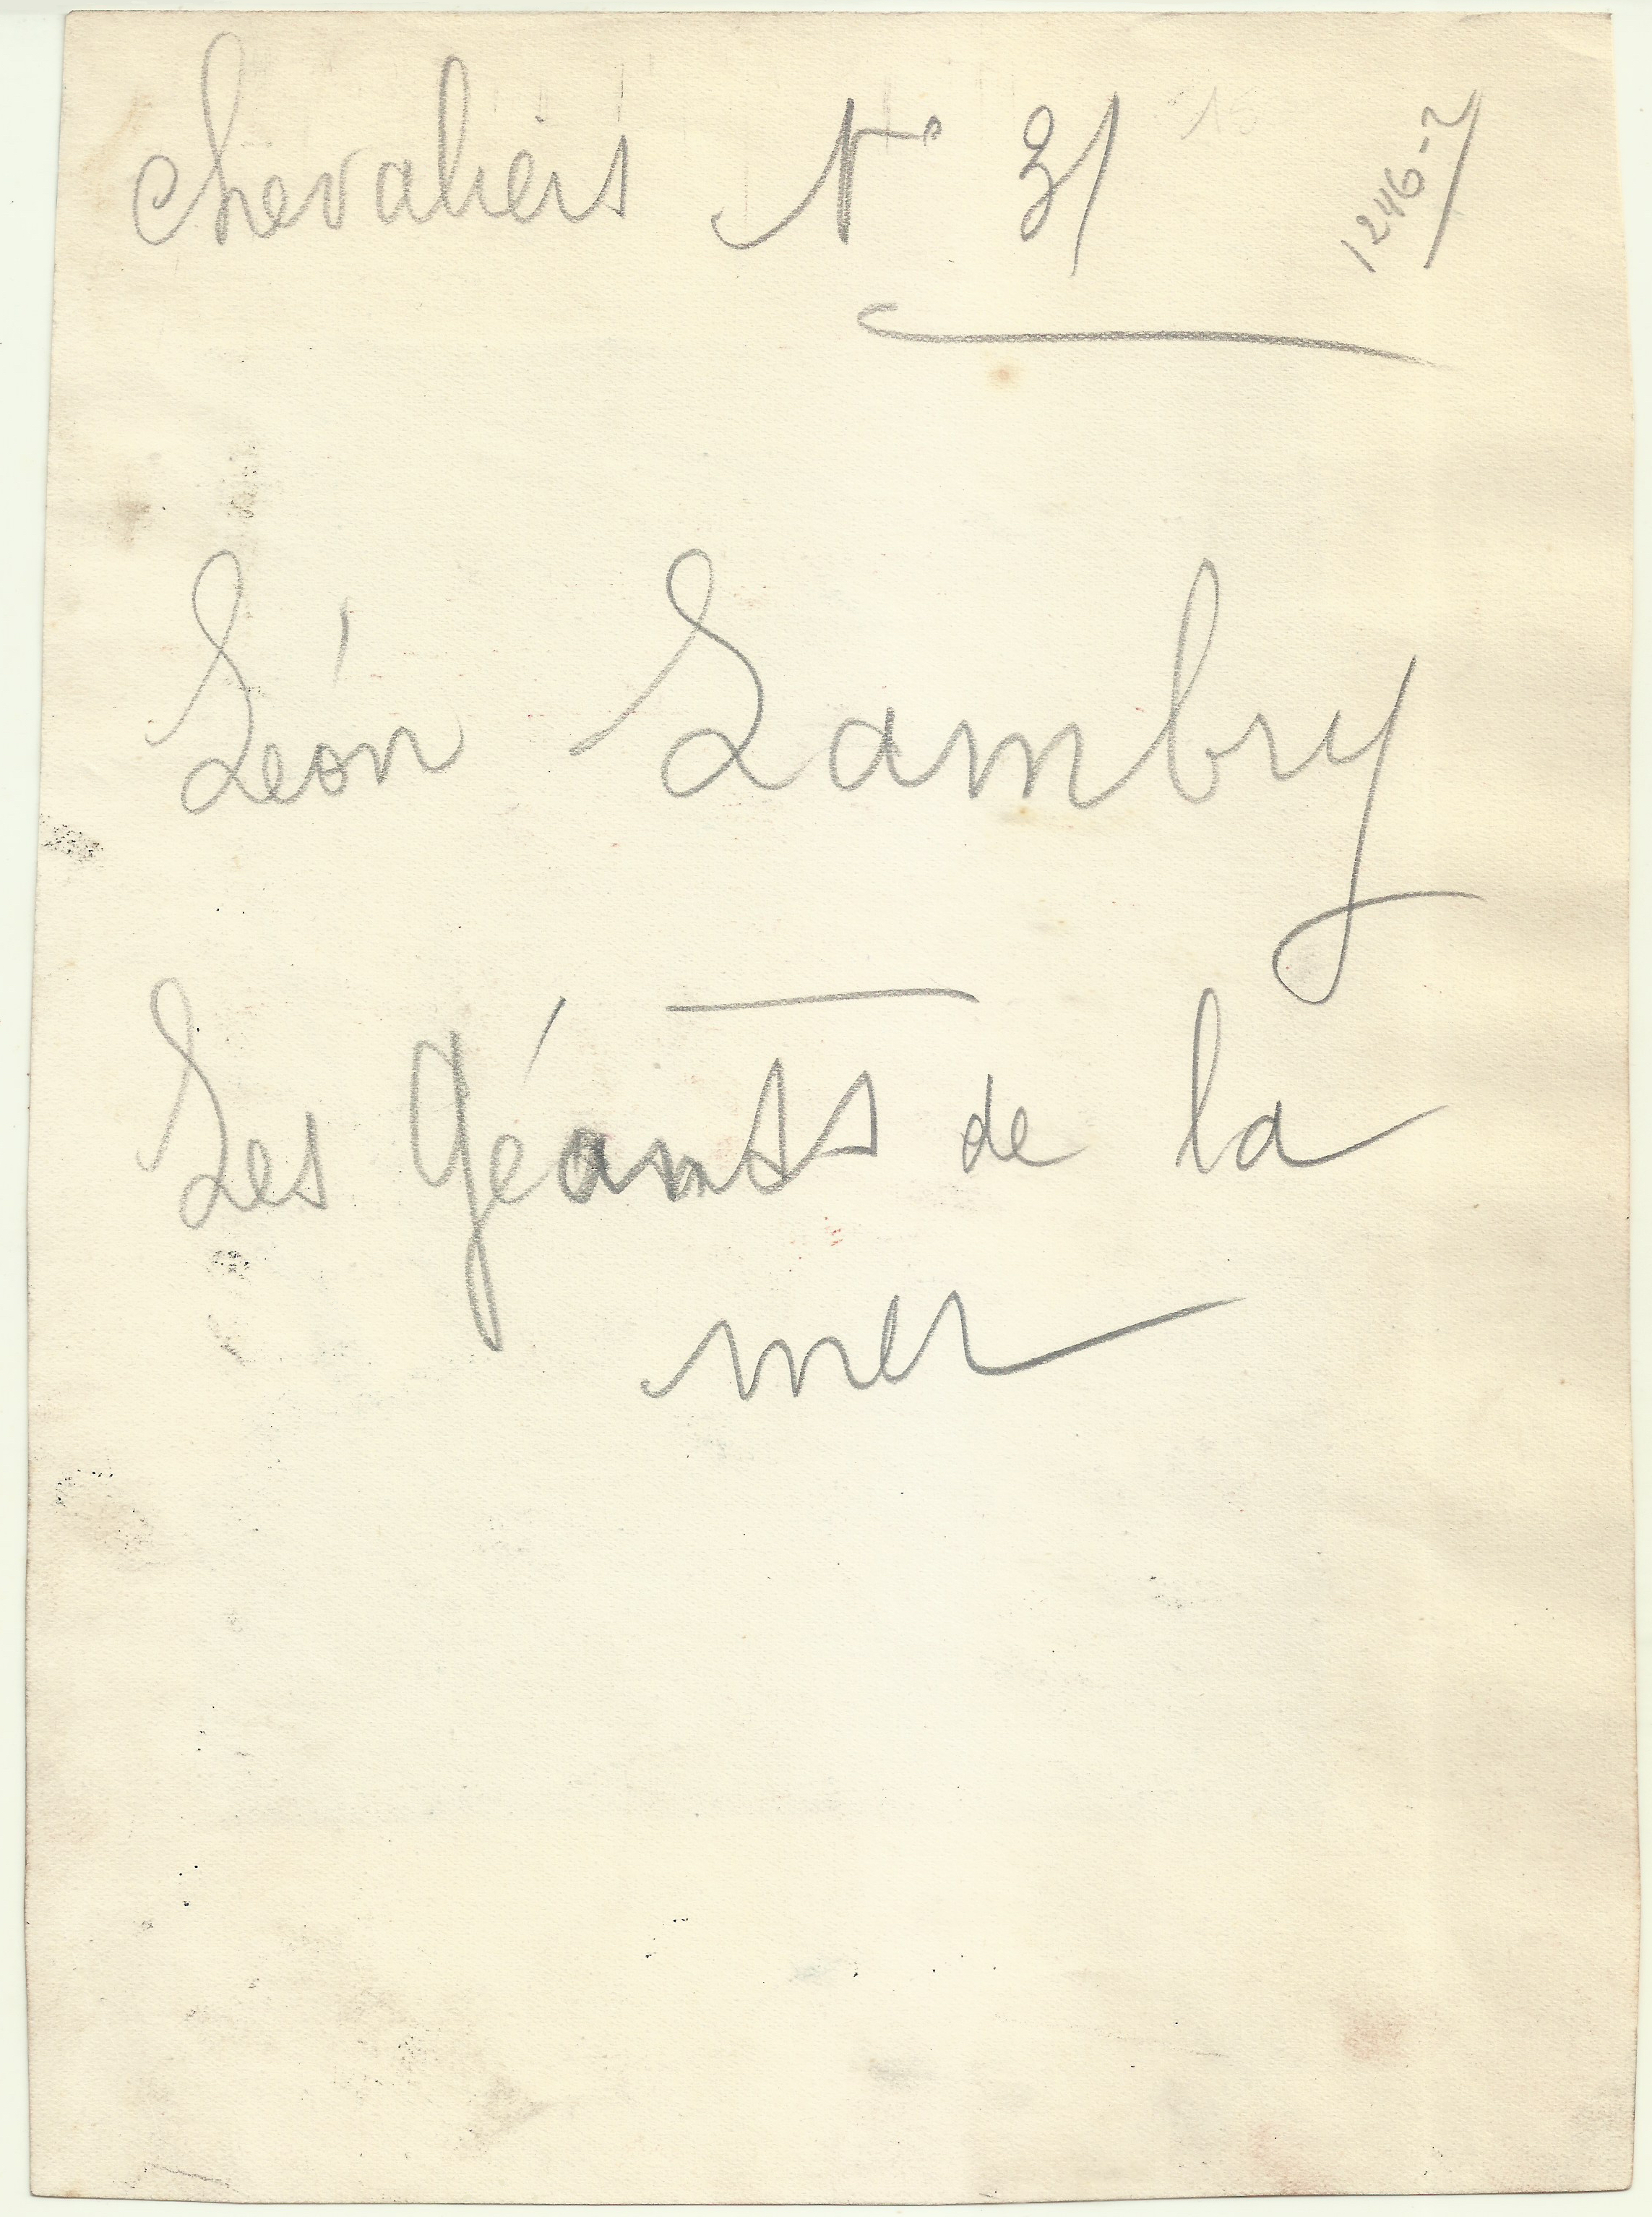 Chevaliers N° 31
1246-7
Léon Lambry
Les Géants de la
mer